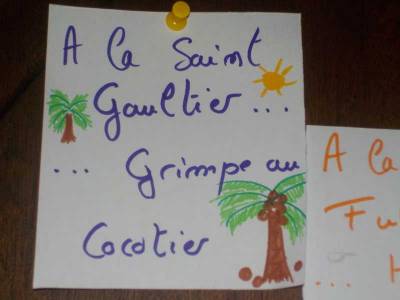 A la Saint
Gaultier ...
... Grimpe au
Cocotier
A la
Fu
...